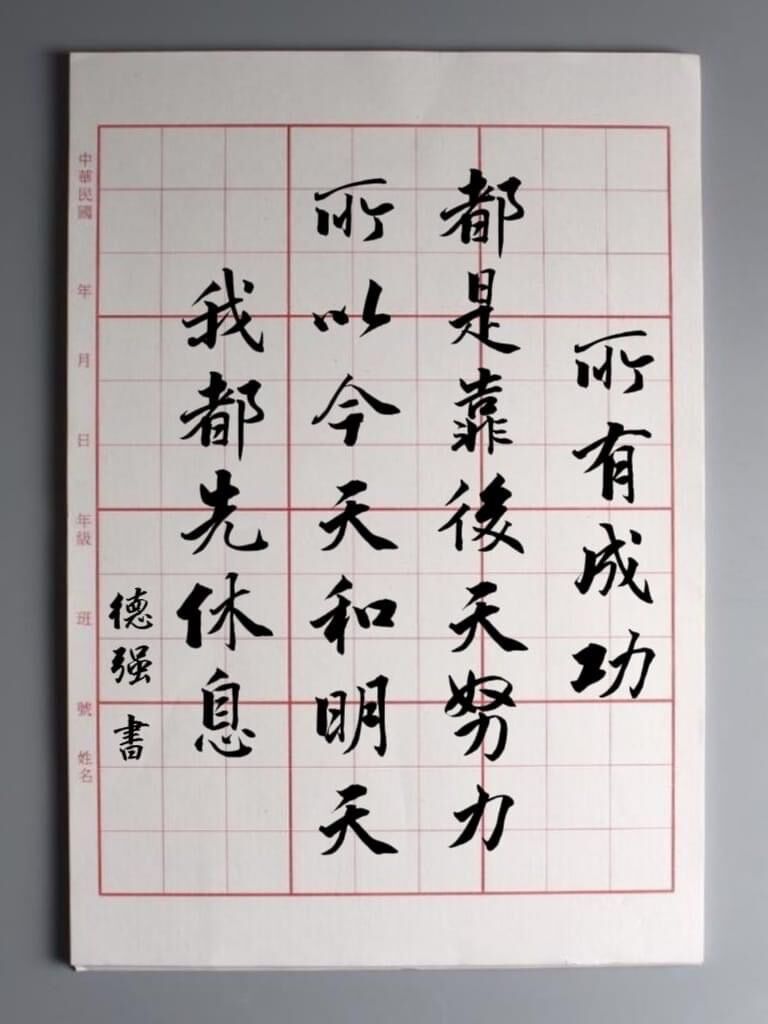 所有成功
都是靠後天努力
所以今天和明天
我都先休息
德强 書
中華民國 年 月 日 年級 班 號 姓名